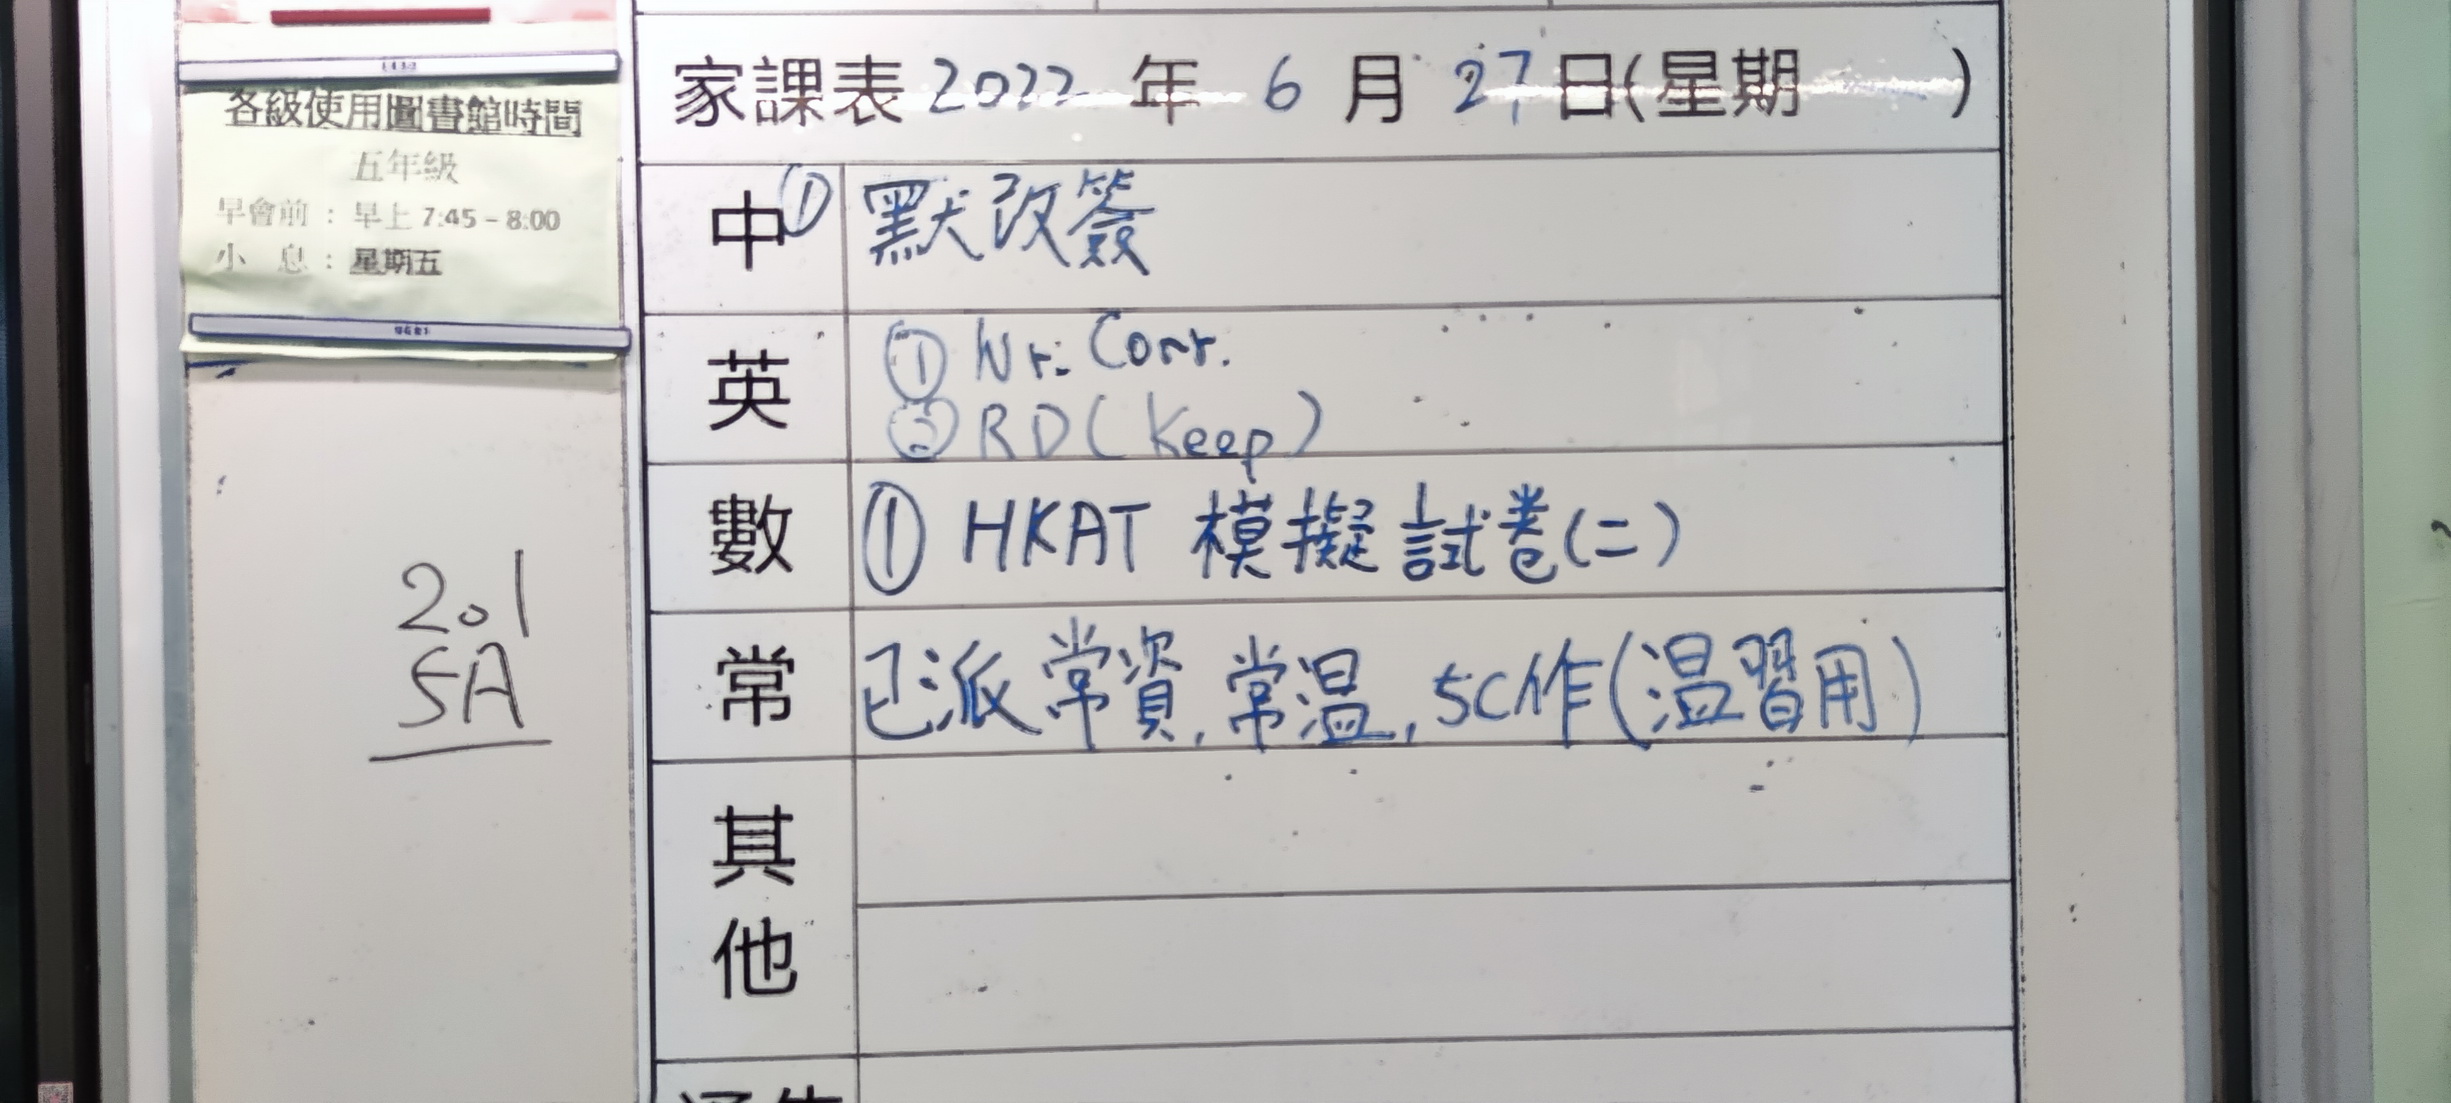 各級使用圖書館時間
五年級
早會前 : 早上 7:45 – 8:00
小 息 : 星期五
201
5A
家課表 2022 年 6 月 27 日(星期 )
中 ① 默改簽
英 ① Wr. Corr.
② RD (Keep)
數 ① HKAT 模擬試卷(二)
常 已派常資, 常温, 5C作(温習用)
其他